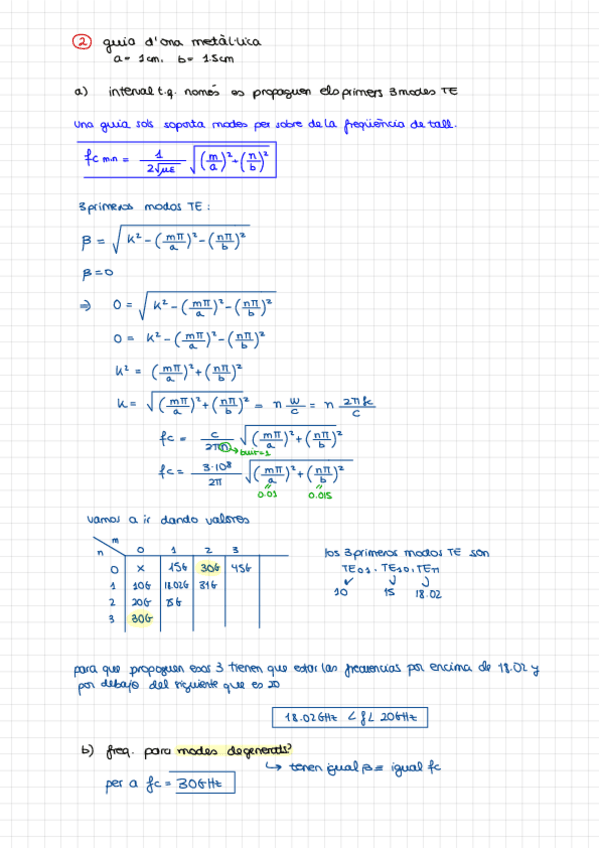 2 guia d'ona metàl·lica
a= 1cm, b= 1.5cm
a) interval t.q. només es propaguen els primers 3 modes TE
una guia sols soporta modes per sobre de la freqüència de tall.
fc min = 1/(2√με) √((m/a)²+(n/b)²)
3 primeros modos TE:
β = √(k²-(mπ/a)²-(nπ/b)²)
β=0
⇒ 0 = √(k²-(mπ/a)²-(nπ/b)²)
0 = k²-(mπ/a)²-(nπ/b)²
k² = (mπ/a)²+(nπ/b)²
k = √((mπ/a)²+(nπ/b)²) = n w/c = n 2πfc/c
fc = c/(2πn) √((mπ/a)²+(nπ/b)²)
→ buit=1
fc = 3·10⁸/2π √((mπ/a)²+(nπ/b)²)
0.01 0.015
vamos a ir dando valores
m
n 0 1 2 3
0 x 15G 30G 45G
1 10G 18.02G 31G
2 20G 25G
3 30G
los 3 primeros modos TE son
TE01, TE10, TE11
10 15 18.02
para que propaguen esos 3 tienen que estar las frecuencias por encima de 18.02 y
por debajo del siguiente que es 20
18.02GHz < f < 20GHz
b) freq. para modes degenerats?
↳ tenen igual β = igual fc
per a fc = 30GHz